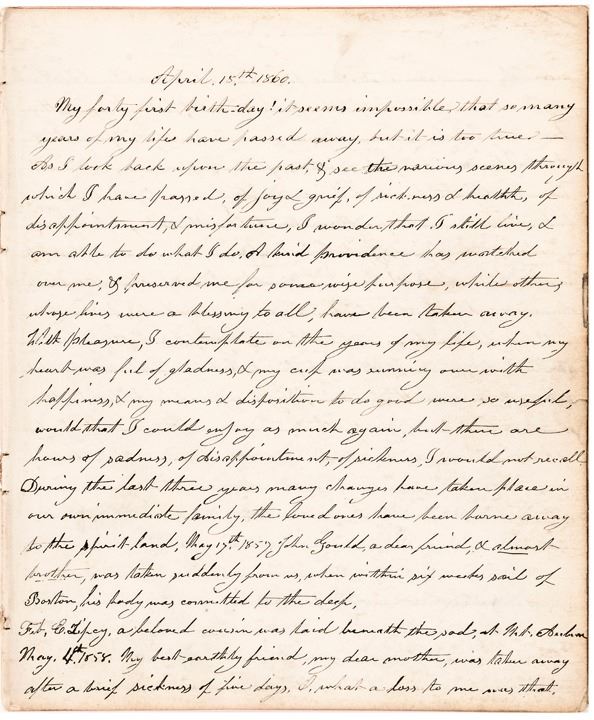 April. 15.th 1860.
My forty first birth-day! it seems impossible, that so many
years of my life have passed away, but it is too true. —
As I look back upon the past, & see the various scenes through
which I have passed, of joy & grief, of sickness & health, of
disappointment, & misfortune, I wonder, that I still live, &
am able to do what I do. A kind providence has watched
over me, & preserved me for some wise purpose, while others,
whose lives were a blessing to all, have been taken away.
With pleasure, I contemplate on the years of my life, when my
heart was full of gladness, & my cup was running over with
happiness, & my means & disposition to do good were so useful,
would that I could enjoy as much again, but there are
hours of sadness, of disappointment, of sickness, I would not recall
During the last three years, many changes have taken place in
our own immediate family, the loved ones have been borne away
to the spirit-land, May 17.th 1857 John Gould, a dear friend, & almost
brother, was taken suddenly from us, when within six weeks sail of
Boston, his body was committed to the deep,
Feb, E. a beloved cousin was laid beneath the sod, at Mt. Auburn
May. 4.th 1858. My best earthly friend, my dear mother, was taken away
after a brief sickness of five days, O, what a loss to me was that.